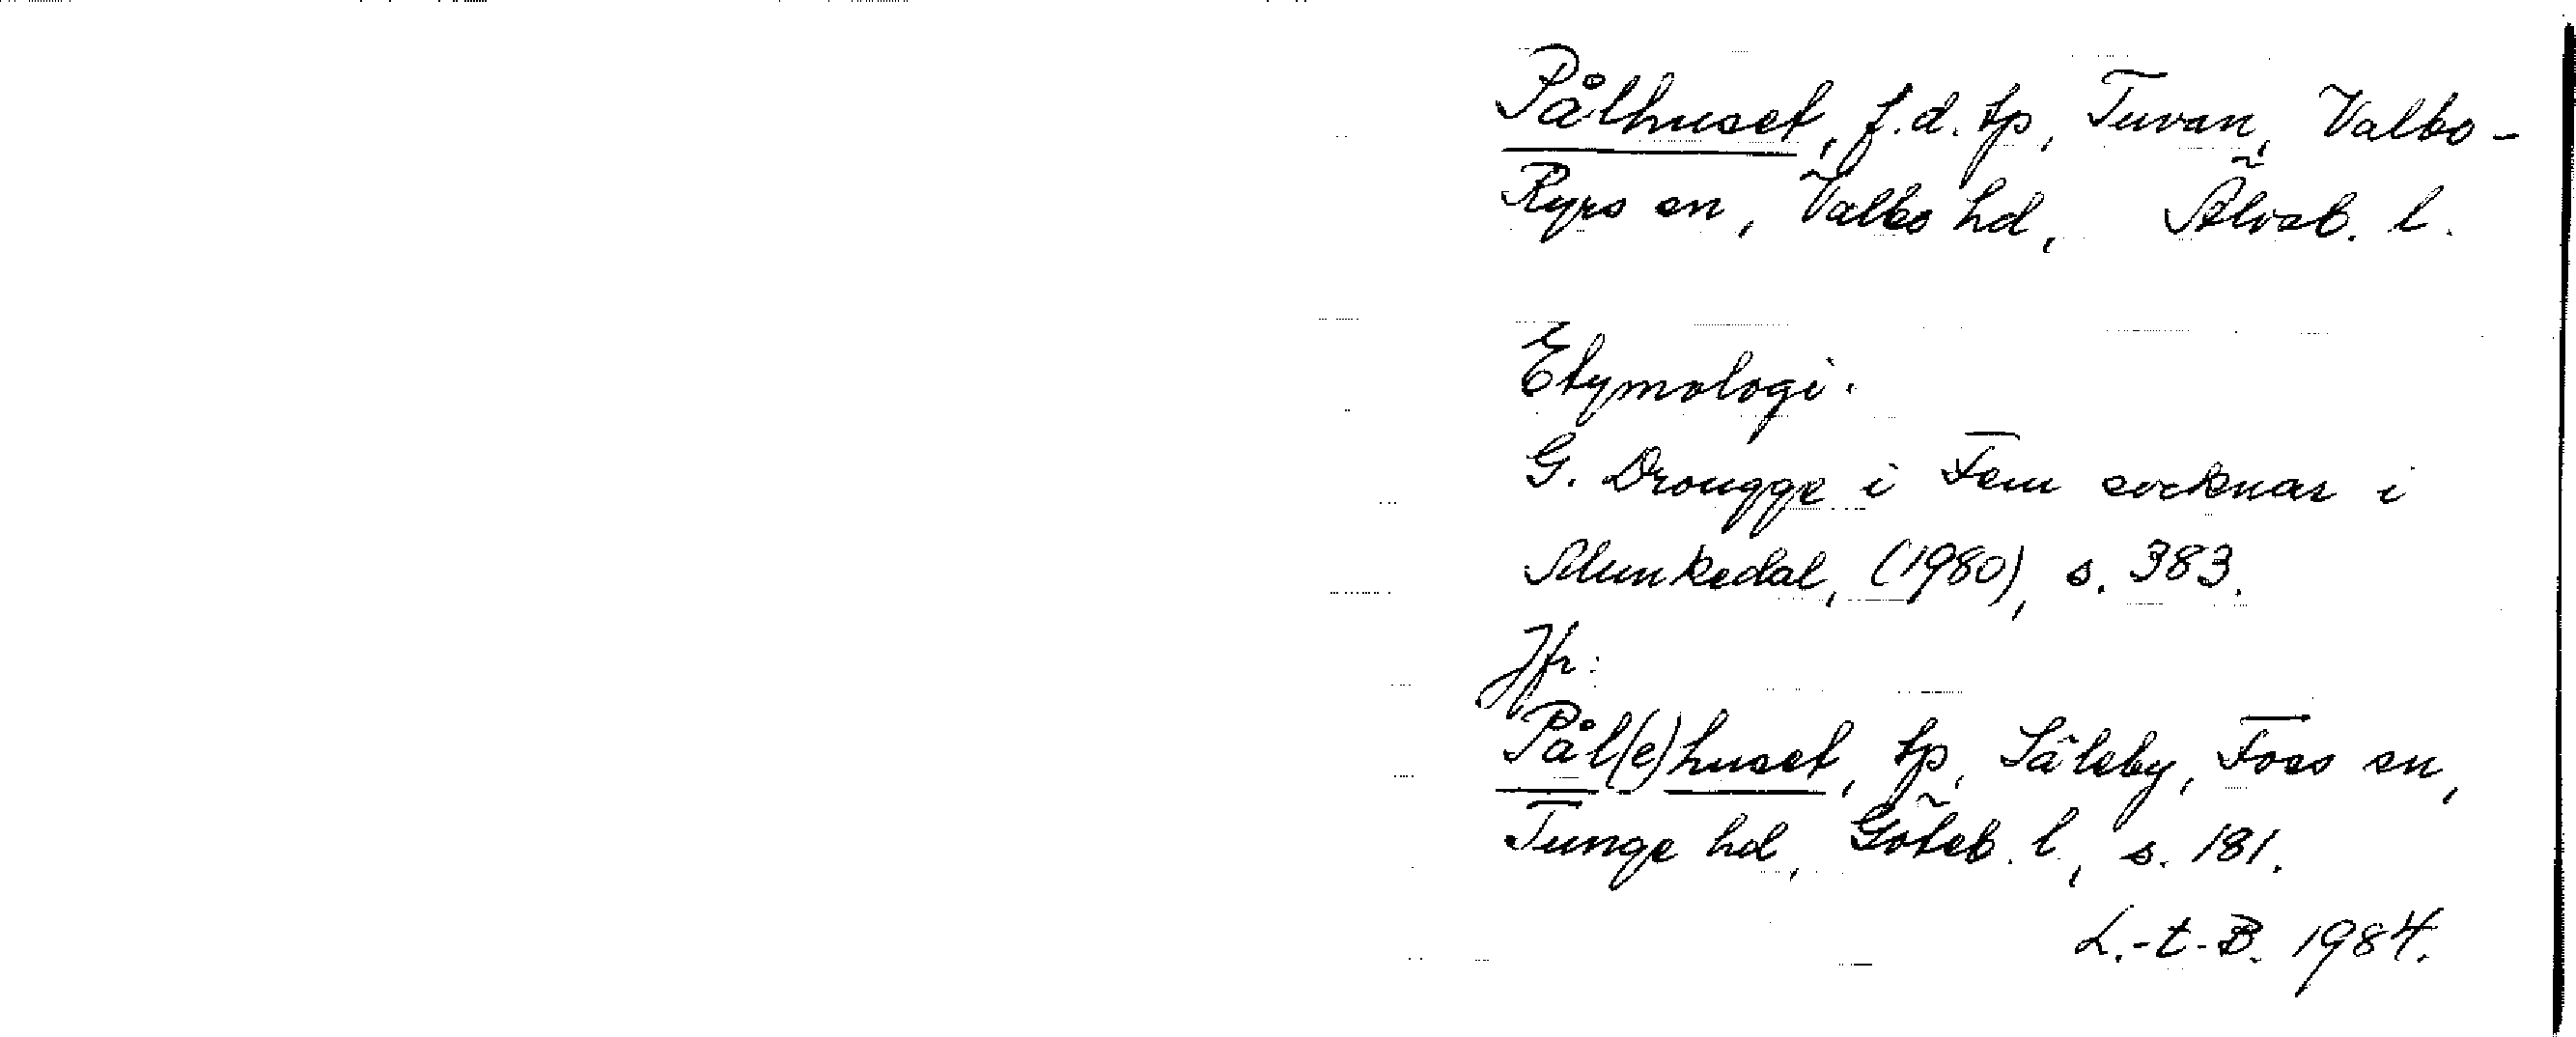 Pålhuset, f.d. tp, Tuvan, Valbo-
Ryrs sn, Valbo hd, Älvsb. l.
Etymologi:
G. Drougge i Fem socknar i
Munkedal, (1980), s. 383.
Jfr:
Pål(e)huset, tp, Säleby, Foss sn,
Tunge hd, Göteb. l., s. 181.
L.-t-B. 1984.